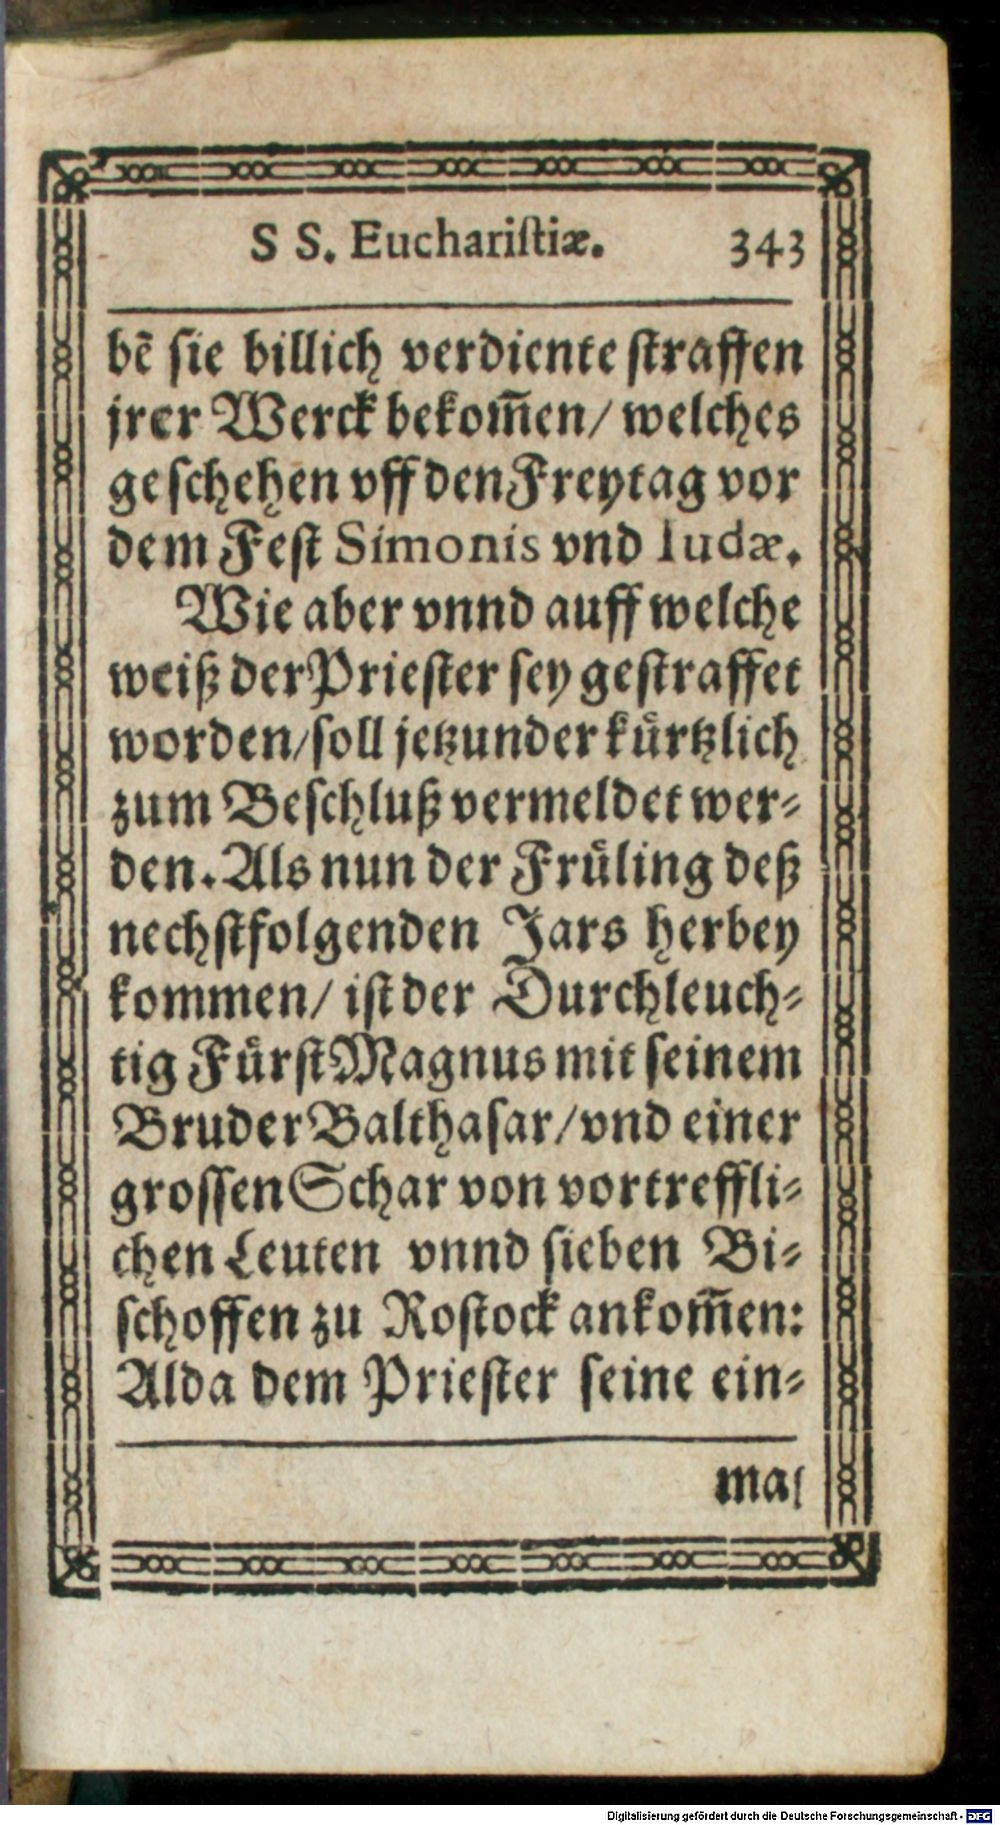 S S. Euchariſtiæ. 343
bē ſie billich verdiente ſtraffen
jrer Werck bekom̄en/ welches
geſchehen vff den Freytag vor
dem Feſt Simonis vnd Iudæ.
Wie aber vnnd auff welche
weiß der Prieſter ſey geſtraffet
worden/ ſoll jetzunder kuͤrtzlich
zum Beſchluß vermeldet wer⸗
den. Als nun der Fruͤling deß
nechſtfolgenden Jars herbey
kommen/ iſt der Durchleuch⸗
tig Fuͤrſt Magnus mit ſeinem
Bruder Balthaſar/ vnd einer
groſſen Schar von vortreffli⸗
chen Leuten vnnd ſieben Bi⸗
ſchoffen zu Roſtock ankom̄en:
Alda dem Prieſter ſeine ein⸗
mal
Digitalisierung gefördert durch die Deutsche Forschungsgemeinschaft - DFG